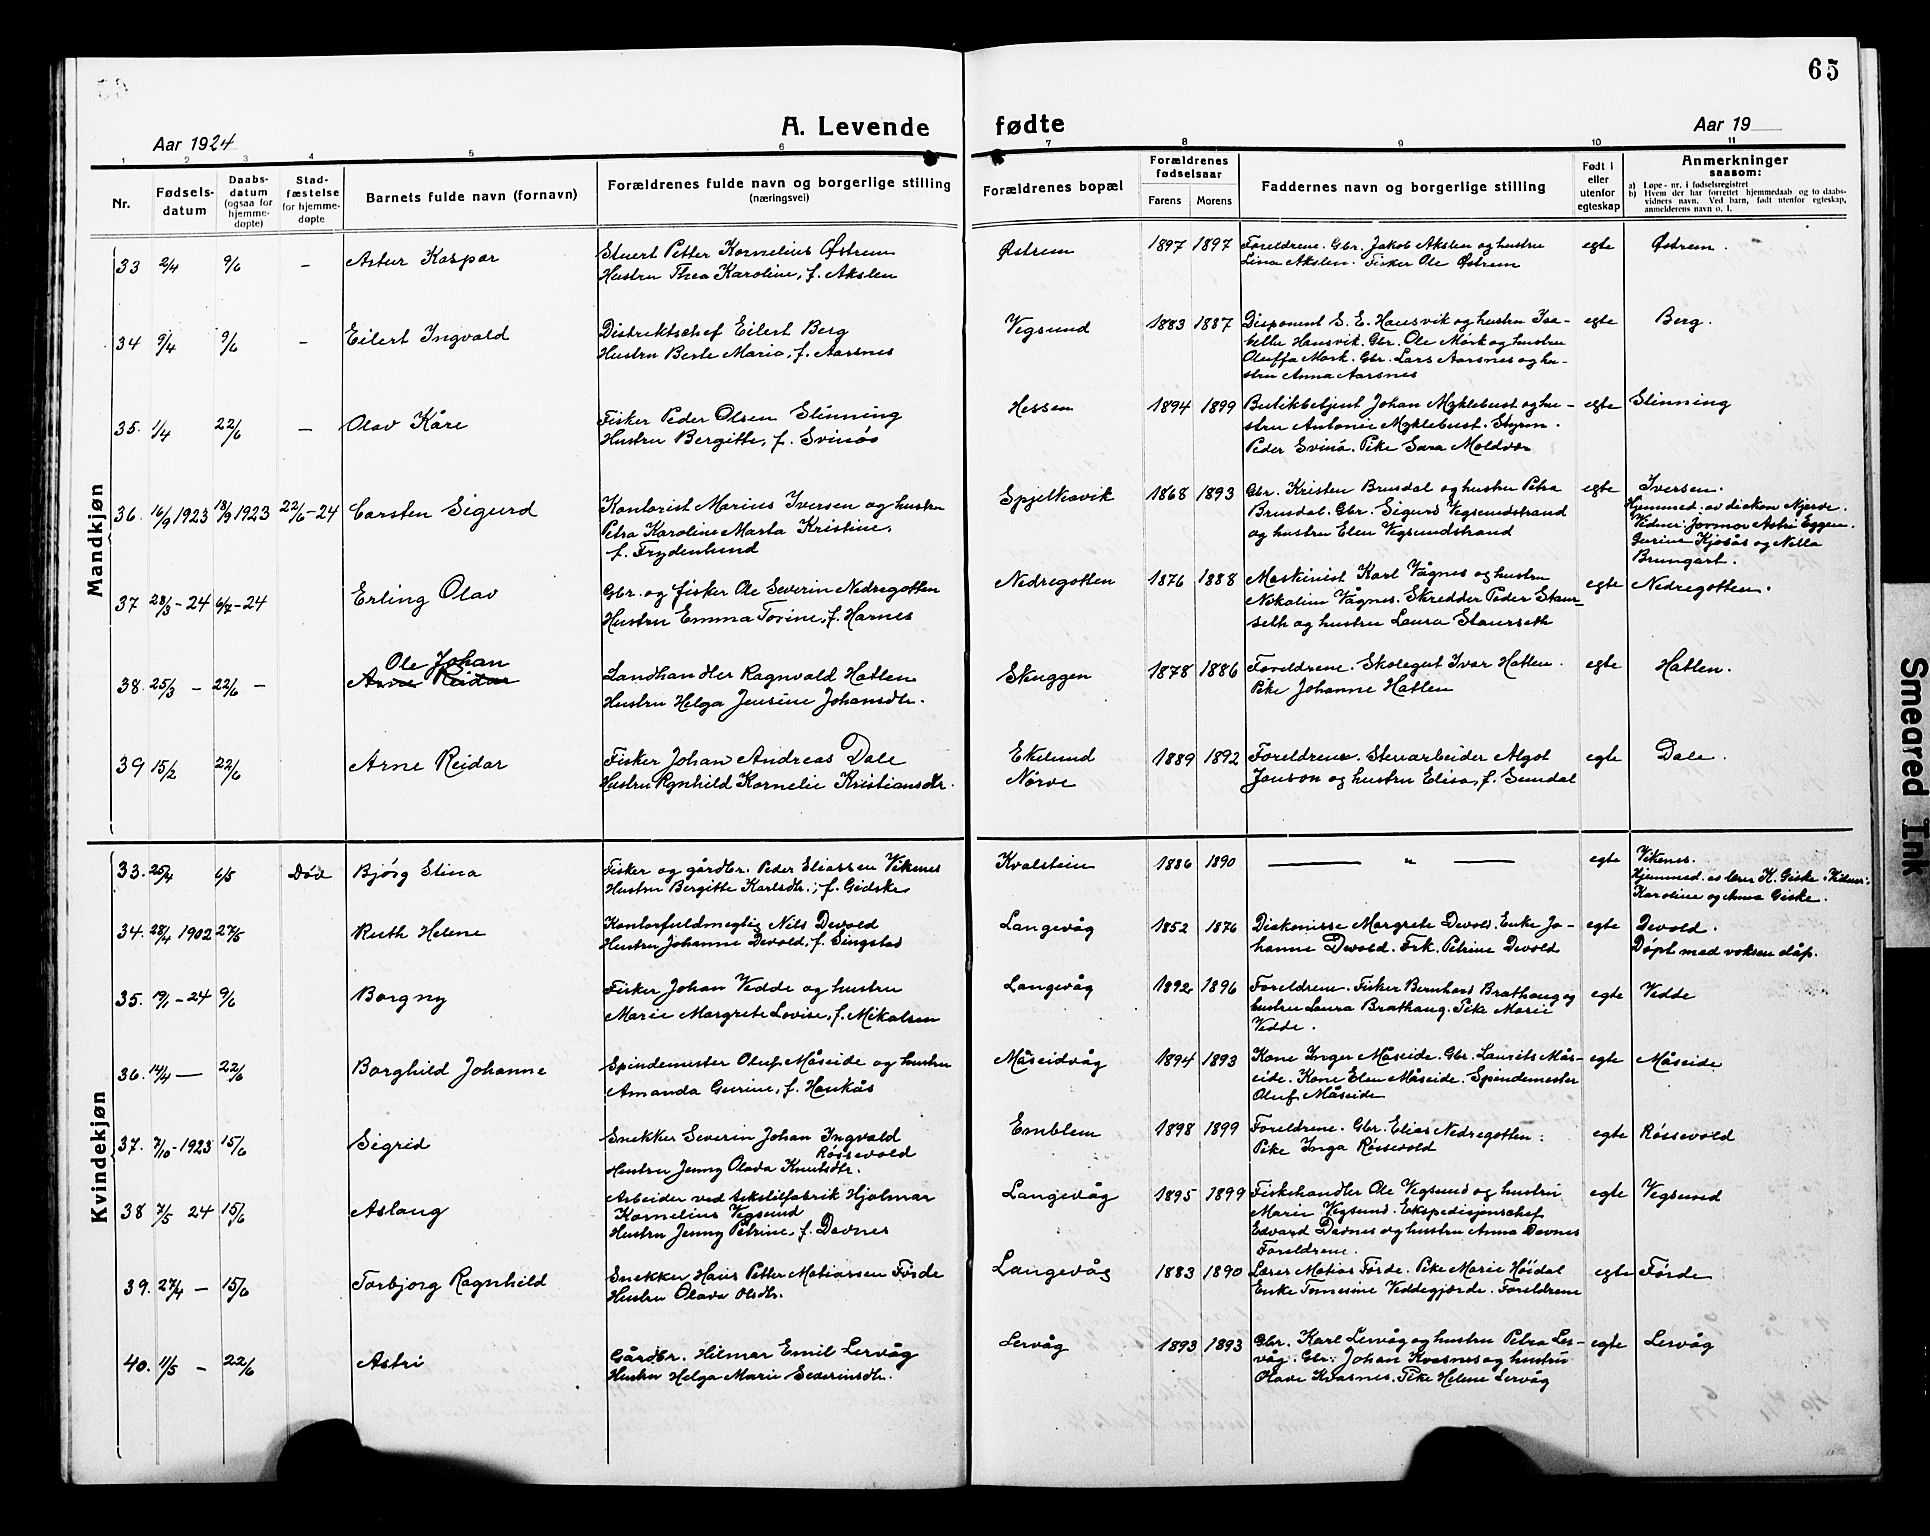 65
A. Levende fødte
Aar 1924
Aar 19
1 2 3 4 5 6 7 8 9 10 11
Nr.
Fødsels-
datum
Daabs-
datum
(ogsaa for
hjemme-
døpte)
Stad-
fæstelse
for hjemme-
døpte
Barnets fulde navn (fornavn)
Forældrenes fulde navn og borgerlige stilling
(næringsvei)
Forældrenes bopæl
Forældrenes
fødselsaar
Farens Morens
Faddernes navn og borgerlige stilling
Født i
eller
utenfor
egteskap
Anmerkninger
saasom:
a) Løpe-nr. i fødselsregistret
b) Hvem der har forrettet hjemmedaab og to daabs-
vidners navn. Ved barn, født utenfor egteskap,
anmelderens navn o. l.
Mandkjøn
33 2/4 9/6 – Astur Kaspar
Stuert Petter Kornelius Østrem
Hustru Thea Karoline, f. Akslen
Østrem 1897 1897
Foreldrene. Gbr. Jakob Akslen og hustru
Lina Akslen. Fisker Ole Østrem
egte Østrem.
34 9/4 9/6 – Eilert Ingvald
Distriktschef Eilert Berg
Hustru Berte Maria, f. Aarsnes
Vegsund 1883 1887
Disponent S. E. Hansvik og hustru Isa-
belle Hansvik. Gbr. Ole Mørk og hustru
Oluffa Mørk. Gbr. Lars Aarsnes og hu-
stru Anna Aarsnes
egte Berg.
35. 1/4 22/6 – Olav Kåre
Fisker Peder Olsen Slinning
Hustru Bergitte, f. Svinøs
Hessen 1894 1899
Butikbetjent Johan Myklebust og hu-
stru Antonie Myklebust. Styrm.
Peder Svinø. Pike Sara Moldvær
egte Slinning
36. 16/9 1923 18/9 1923 22/6-24 Carsten Sigurd
Kontorist Marius Iversen og hustru
Petra Karoline Marta Kristine,
f. Frydenlund
Spjelkavik 1868 1893
Gbr. Kristen Brusdal og hustru Petra
Brusdal. Gbr. Sigurd Vegsundstrand
og hustru Elen Vegsundstrand
egte Iversen.
Hjemmed. av diakon Njerve.
Vidner: Jormor Astri Eggen.
Gurine Kjosås og Nella
Brungart.
37 28/3-24 6/7-24 Erling Olav
Gbr. og fisker Ole Severin Nedregotten
Hustru Emma Torine, f. Harnes
Nedregotten 1876 1888
Maskinist Karl Vågnes og hustru
Nikoline Vågnes. Skredder Peder Staur-
seth og hustru Laura Staurseth
egte Nedregotten.
38. 25/3 – 22/6 – Ole Johan
Arne Reidar
Landhandler Ragnvald Hatlen
Hustru Helga Jensine Johansdtr.
Skuggen 1878 1886
Foreldrene. Skolegut Ivar Hatlen.
Pike Johanne Hatlen
egte Hatlen.
39 15/2 22/6 Arne Reidar
Fisker Johan Andreas Dale
Hustru Rgnhild Kornelie Kristiansdtr.
Ekelund
Nørve
1889 1892
Foreldrene. Stenarbeider Algot
Janson og hustru Elisa, f. Sundal
egte Dale.
Kvindekjøn
33. 25/4 6/5 Død Bjørg Stina
Fisker og gårdbr. Peder Eliassen Vikenes
Hustru Bergitte Karlsdtr., f. Gidske
Kvalstein 1886 1890 — " —
egte Vikenes.
Hjemmed. av lærer K. Giske. Vidner:
Karoline og Anna Giske.
34. 28/4 1902 27/5 Ruth Helene
Kontorfuldmegtig Nils Devold
Hustru Johanne Devold, f. Singstad
Langevåg 1852 1876
Diakonisse Margrete Devold. Enke Jo-
hanne Devold. Frk. Petrine Devold
egte Devold.
Døpt med voksen dåp.
35. 19/1-24 9/6 Borgny
Fisker Johan Vedde og hustru
Marie Margrete Lovise, f. Mikalsen
Langevåg 1892 1896
Foreldrene. Fisker Bernhard Brathaug og
hustru Laura Brathaug. Pike Marie
Vedde.
egte Vedde
36. 14/4 — 22/6 Borghild Johanne
Spindemester Oluf Måseide og hustru
Amanda Gurine, f. Haukås
Måseidvåg 1894 1893
Kone Inger Måseide. Gbr. Laurits Mås-
eide. Kone Elen Måseide. Spindemester
Oluf Måseide
egte Måseide
37. 7/10-1923 15/6 Sigrid
Snekker Severin Johan Ingvald
Røssevold
Hustru Jenny Olava Knutsdtr.
Emblem 1898 1899
Foreldrene. Gbr. Elias Nedregotten.
Pike Inga Røssevold
egte Røssevold
38 7/5 24 15/6 Aslaug
Arbeider ved tekstilfabrik Hjalmar
Kornelius Vegsund
Hustru Jenny Petrine, f. Davnes
Langevåg 1895 1899
Fiskehandler Ole Vegsund og hustru
Marie Vegsund. Ekspedisjonschef
Edvard Davnes og hustru Anna Davnes
Foreldrene.
egte Vegsund
39. 27/4 – 15/6 Torbjørg Ragnhild
Snekker Hans Petter Matiassen Førde
Hustru Olava Olsdtr.
Langevåg 1883 1890
Lærer Matias Førde. Pike Marie Høidal
Enke Tomesine Veddegjerde. Foreldrene
egte Førde
40. 11/5 – 22/6 Astri
Gårdbr. Hilmar Emil Lervåg
Hustru Helga Marie Severinsdtr.
Lervåg 1893 1893
Gbr. Karl Lervåg og hustru Petra Ler-
våg. Gbr. Johan Kvasnes og hustru
Olave Kvasnes. Pike Helene Lervåg
egte Lervåg
Smeared Ink